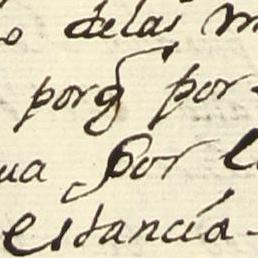 o delas m
porq̃ por
ua por l
estancia